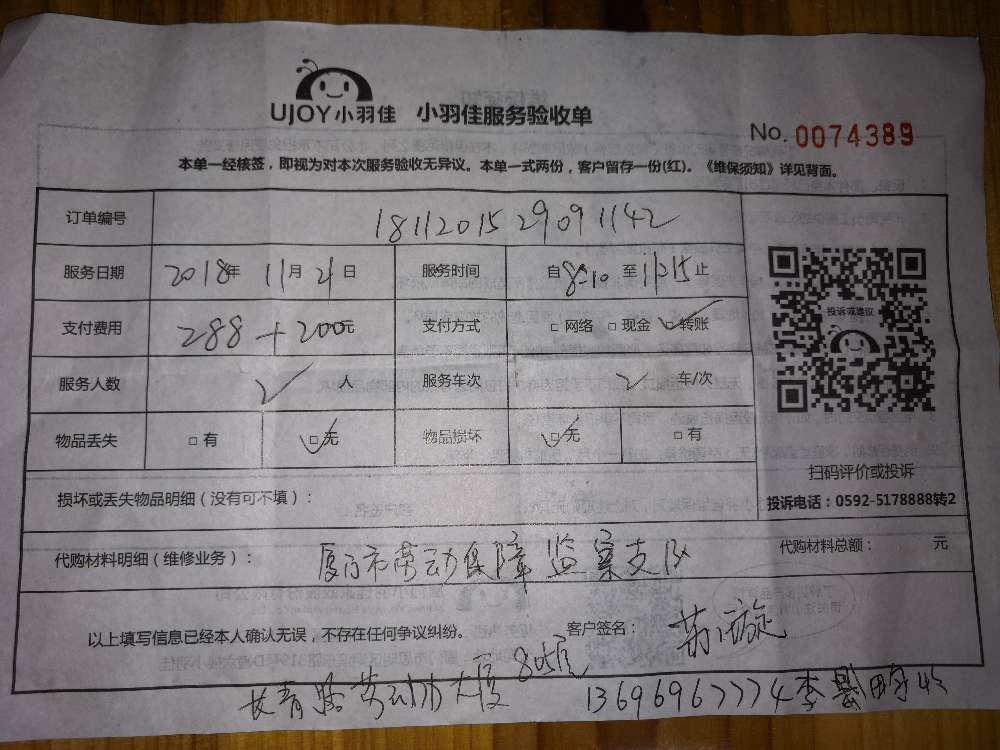 UJOY小羽佳 小羽佳服务验收单
No. 0074389
本单一经核签，即视为对本次服务验收无异议。本单一式两份，客户留存一份(红)。《维保须知》详见背面。
订单编号 1811201529091142
服务日期 2018年 11月 21日 服务时间 自8:10 至11:15止
支付费用 288+200元 支付方式 □网络 □现金 □转账
投诉或建议
服务人数 2 人 服务车次 2 车/次
物品丢失 □有 □无 物品损坏 □无 □有
扫码评价或投诉
损坏或丢失物品明细（没有可不填）：
投诉电话：0592-5178888转2
代购材料明细（维修业务）： 厦门市劳动保障监察支队 代购材料总额： 元
以上填写信息已经本人确认无误，不存在任何争议纠纷。 客户签名：
长青路劳动力大厦